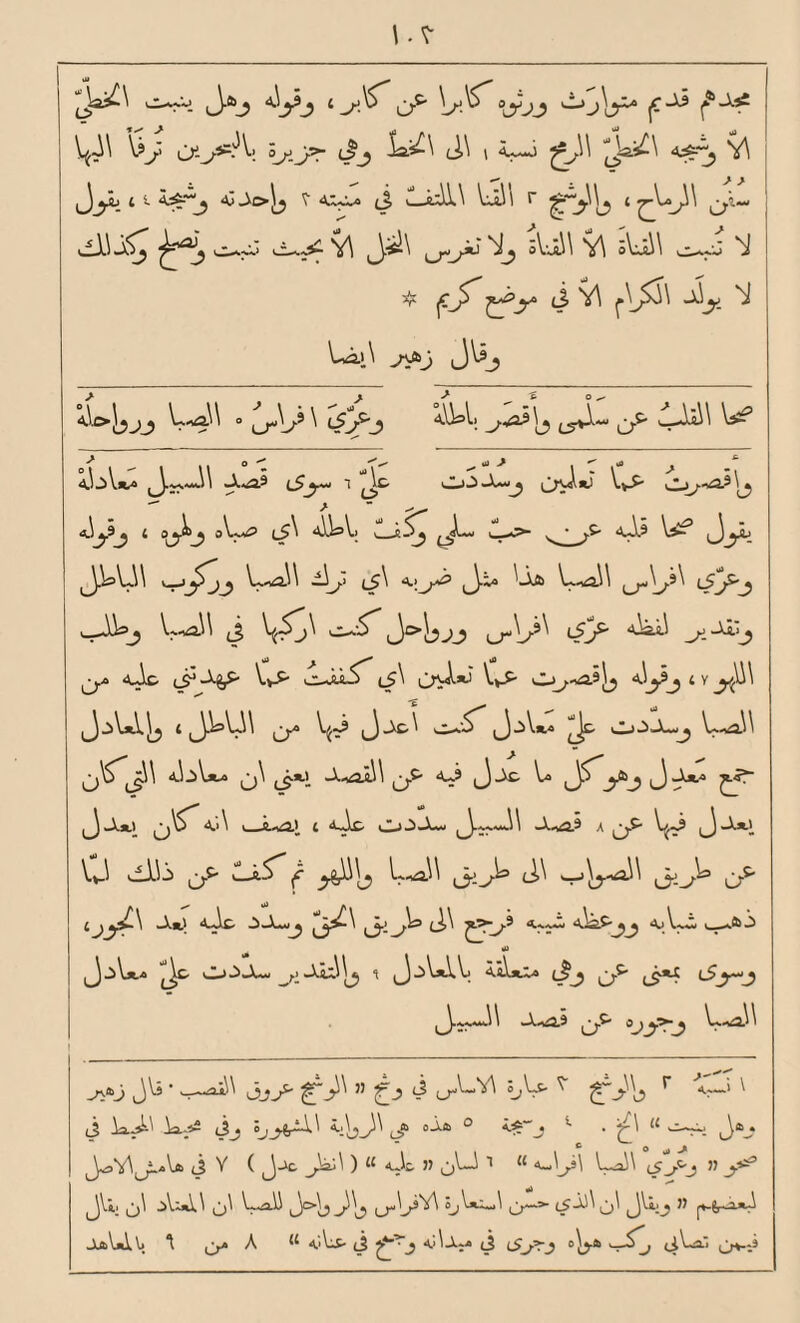 ١٠٢
مجدهم قديم متوارث ورثوه كابرا عن كابر ، وقوله وهل ينبت الخطيّ
الّا وشيجه الخطيّ الرمح نسبة ١ الى الخط وهي جزيرة بالبحرين ترفأ اليها
سفن الرماح ، والوشيج ٢ القنا الملتفّ في منبته ٣ واحدته وشيجة ٤ ، يقول
لا تنبت القناة الّا القناة ولا تغرس النخل الّا بحيث تنبت وتصلح وكذلك
لا يولد الكرام الّا في موضع كريم *
وقال زهير ايضا
صحا القلبُ عن سلمى واقصَر باطلُهْ وعُرّيَ افراسُ ٥ الصبا ورواحلُهْ
واقصرتُ عمّا تعلمين وسُدّدت عليَّ ٦ سوى قصدِ السبيلِ معادلُهْ
يقول صحا قلبه عن حبّ سلمى وكفّ باطله اي صباه ولهوه ، وقوله
وعرّي افراس الصبا هذا مثل ضربه اي ترك الصبا وركوب الباطل
وتقدير لفظه عرّي افراس ورواحل كنت اركبها في الصبا وطلب
اللهو ٧ ، وقوله واقصرت عمّا تعلمين اي كففت عمّا عهدتني عليه من
الصبا وسدّدت عليّ معادل كنت أعدل فيها من الباطل ، والمعادل
جمع معدل وهو كل ما عدل فيه عن القصد يعني ان معادله التي كان
يعدل فيها عن ٨ قصد السبيل سدّدت عليه ، يصف انه كان يعدل
عن طريق الصواب الى طريق الصبا واللهو ثم كفّ عن ذلك لمّا
ذهب شبابه ووعظه شيبه فرجع الى طريق الحقّ وسدّد عليه بعد الجور ،
وسوى بمعنى عن وهي متعلقة بالمعادل ٩ والتقدير سدّدت عليّ معادل
الصبا وجوره عن قصد السبيل
١ نسبةً ٢ والرشيح ٣ عبارة الاساس في وشج « الوشيج عروق القصب • قال زهير
وهل ينبت « الخ . ٤ وسيجة ٥ هذه هي الرواية المشهورة وفي محيط المحيط في
صحو « وعرّيْ الصبا افراسه » ٦ لسان « عليه » ( انظر عدل ) ٧ في هامش الاصل
لبعضهم « ويقال ان الذي حسن استعارة الافراس والرواحل للصبا ان المعتاد ان يقال
فيمن تصابى ركب هواه وجرى في ميدانه وجمح في عنانه » ٨ من ٩ بالمعاهد